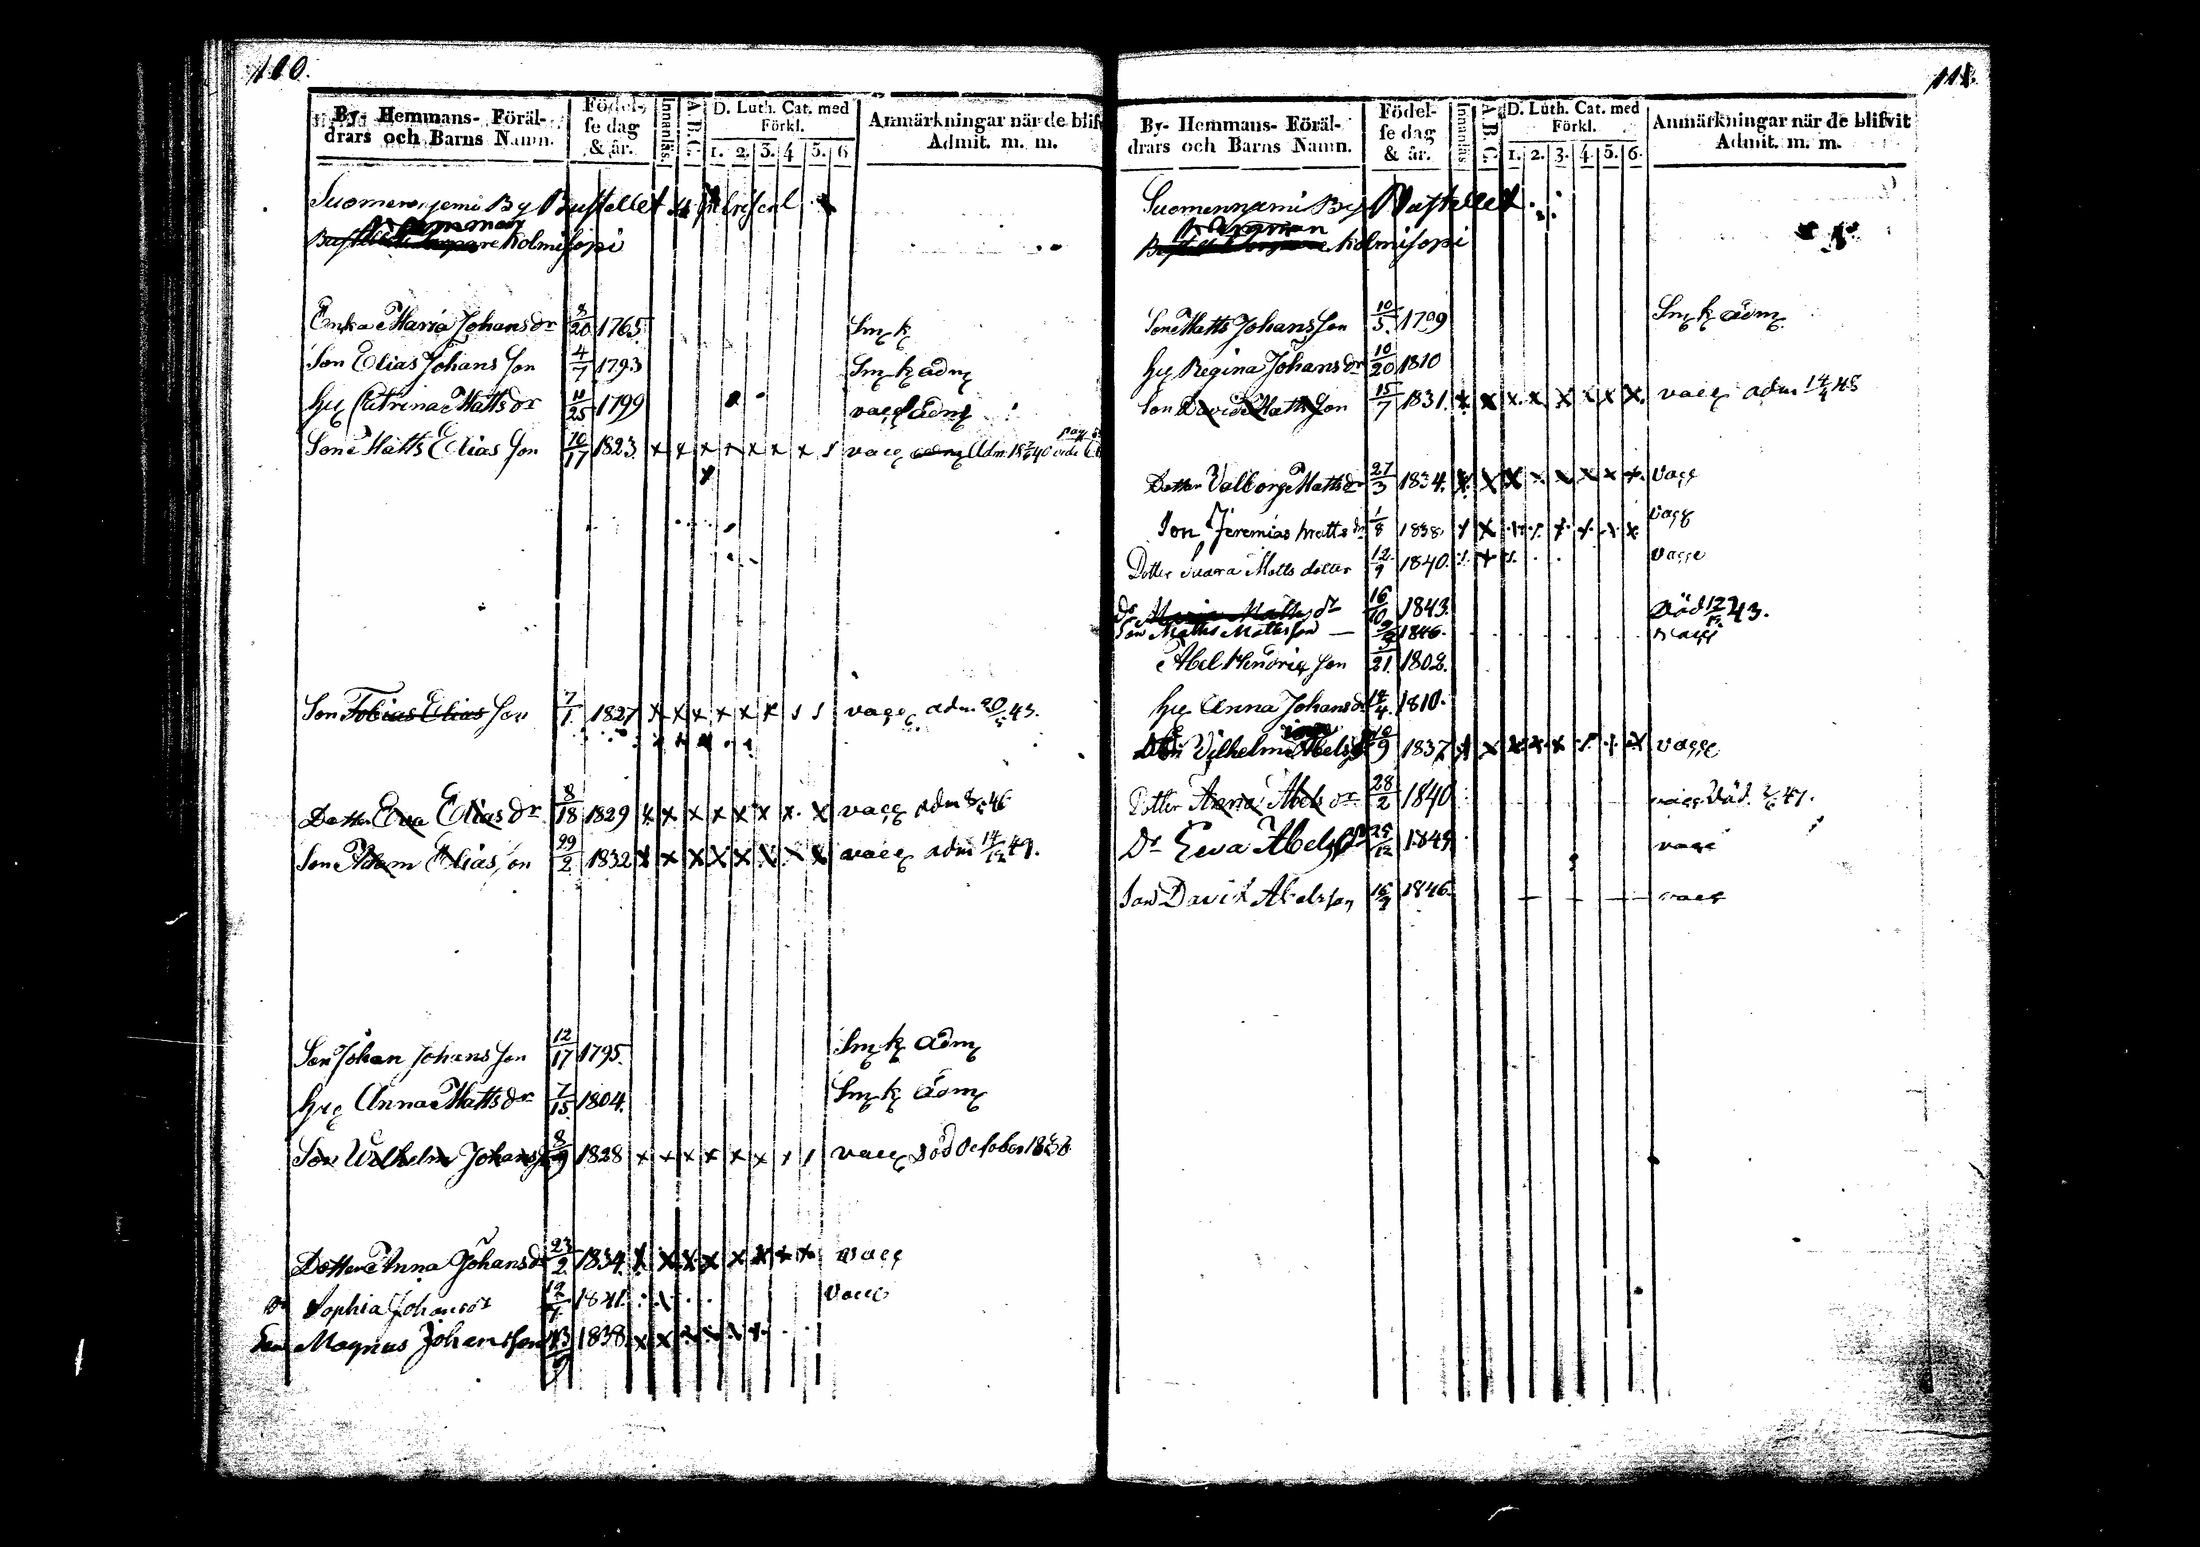 110.
By- Hemmans- Föräl-
drars och Barns Namn.
Födel-
se dag
& år.
Innanläs.
A.B.C.
D. Luth. Cat. med
Förkl.
1. 2. 3. 4 5. 6
Anmärkningar när de blifv
Admit. m. m.
By Bustellet
Kolmisopi
Enka Maria Johansdr 3/20 1765. Smk
Son Elias Johansson 4/7 1793 Smk adm
Hu Catrina Mattsdr 11/25 1799 vacc adm
Son Matts Eliasson 10/17 1823 x x x x x x x 1 vacc adm
Son Tobias Eliasson 7/1 1827 x x x x x x 1 1 vacc adm 20/5 43.
Dotter Eva Eliasdr 8/18 1829 x x x x x x x x vacc adm 46
Son Adam Eliasson 29/2 1832 x x x x x x x x vacc adm 14/12 49.
Son Johan Johansson 12/17 1795. Smk adm
Hu Anna Mattsdr 7/15 1804. Smk adm
Son Wilhelm Johans 8/9 1828 x x x x x x 1 1 vacc död October
Dotter Anna Johansdr 23/2 1834 x x x x x x x x vacc
Dr Sophia Johansdr 1841. vacc
Son Magnus Johansson 13/9 1838 x x x x x x
111.
By- Hemmans- Föräl-
drars och Barns Namn.
Födel-
se dag
& år.
Innanläs
A.B.C.
D. Luth. Cat. med
Förkl.
1. 2. 3. 4. 5. 6.
Anmärkningar när de blifvit
Admit. m. m.
Suomenniemi By Bustellet
Kolmisopi
Son Matts Johansson 10/5. 1799 Smk adm
Hu Regina Johansdr 10/20 1810
Son David Mattsson 15/7 1831. x x x x x x x x vacc adm 48
Dotter Valborg Mattsdr 27/3 1834. x x x x x x x x vacc
Son Jeremias Matts 1/8 1838 x x x x x x x x vacc
Dotter Matts dotter 12/9 1840. vacc
Dr Maria Matts dr 16/10 1843. Död 43.
Son Matts Mattsson 1846. vacc
Abel Henricsson 21. 1802.
Hu Anna Johansdr 1810.
Vilhelmina Abels 9 1837 x x x x x x x x vacc
Dotter Anna Abelsdr 28/2 1840 vacc Död 47.
Dr Eeva Abels 25/12 1844 vacc
Son David Abelsson 1846. vacc